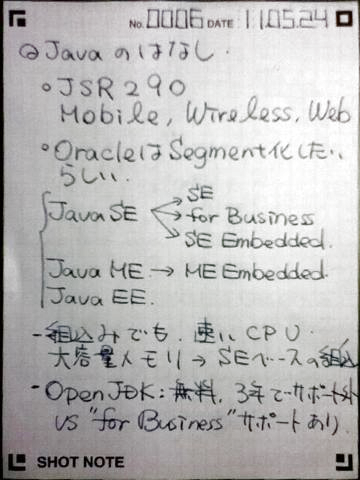 No. 0006 DATE 11.05.24
Javaのはなし.
JSR290
Mobile, Wireless, Web
OracleはSegment化したい
らしい.
Java SE → SE
→ for Business
→ SE Embedded.
Java ME → ME Embedded.
Java EE.
- 組込みでも, 速いCPU.
大容量メモリ → SEベースの組込
- OpenJDK: 無料, 3年でサポート外
VS "for Business" サポートあり.
SHOT NOTE